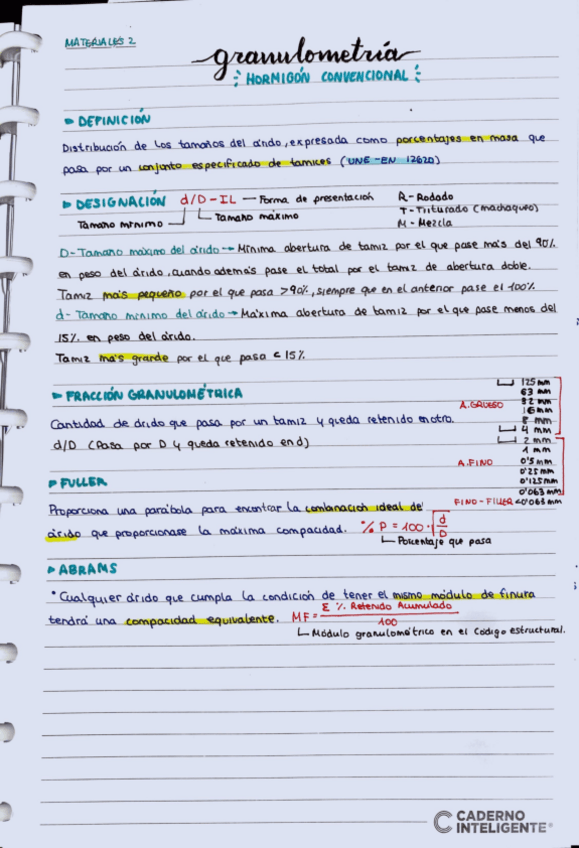 MATERIALES 2
granulometría
HORMIGÓN CONVENCIONAL
DEFINICIÓN
Distribución de los tamaños del árido, expresada como porcentajes en masa que
pasa por un conjunto especificado de tamices (UNE-EN 12620)
DESIGNACIÓN d/D-IL — Forma de presentación
Tamaño mínimo
Tamaño máximo
R- Rodado
T- Triturado (machaqueo)
M- Mezcla
D- Tamaño máximo del árido → Mínima abertura de tamiz por el que pase más del 90%
en peso del árido, cuando además pase el total por el tamiz de abertura doble.
Tamiz más pequeño por el que pasa >90%, siempre que en el anterior pase el 100%
d- Tamaño mínimo del árido → Máxima abertura de tamiz por el que pase menos del
15% en peso del árido.
Tamiz más grande por el que pasa < 15%
FRACCIÓN GRANULOMÉTRICA
Cantidad de árido que pasa por un tamiz y queda retenido en otro.
d/D (Pasa por D y queda retenido en d)
125 mm
63 mm
A. GRUESO 32 mm
16 mm
8 mm
4 mm
2 mm
1 mm
A. FINO 0'5 mm
0'25 mm
0'125 mm
0'063 mm
FINO - FILLER <0'063 mm
FULLER
Proporciona una parábola para encontrar la combinación ideal de
árido que proporcionase la máxima compacidad. % P = 100 · √d/D
Porcentaje que pasa
ABRAMS
• Cualquier árido que cumpla la condición de tener el mismo módulo de finura
tendrá una compacidad equivalente. MF = Σ % Retenido Acumulado / 100
Módulo granulométrico en el Código estructural.
CADERNO
INTELIGENTE®